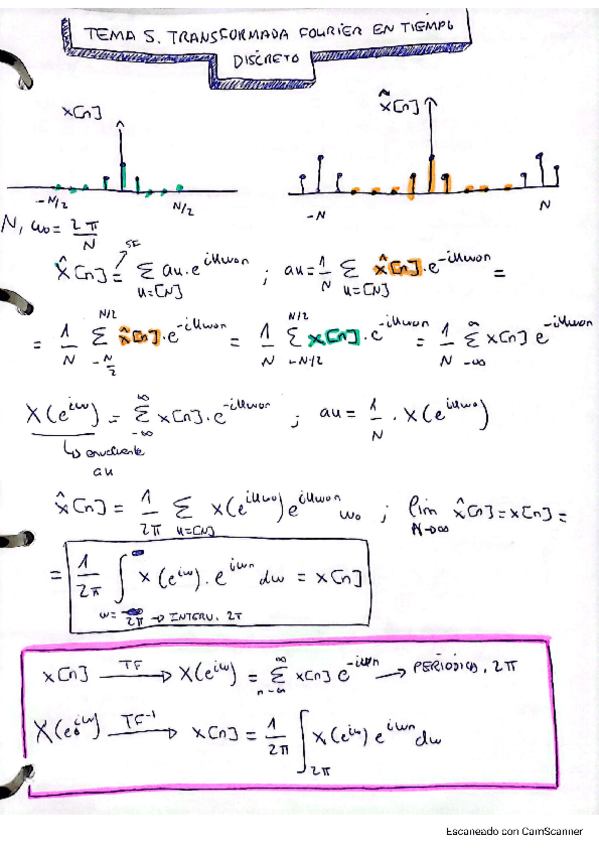 TEMA 5. TRANSFORMADA FOURIER EN TIEMPO
DISCRETO
x[n] x̃[n]
-N/2 N/2 -N N
N, ω₀ = 2π/N
x̂[n] = Σ_{k=[N]} a_k · e^{ikω₀n} ; a_k = 1/N Σ_{k=[N]} x̂[n] · e^{-ikω₀n} =
SF
= 1/N Σ_{-N/2}^{N/2} x̂[n] · e^{-ikω₀n} = 1/N Σ_{-N/2}^{N/2} x[n] · e^{-ikω₀n} = 1/N Σ_{-∞}^{∞} x[n] e^{-ikω₀n}
X(e^{iω}) = Σ_{-∞}^{∞} x[n] · e^{-ikω₀n} ; a_k = 1/N · X(e^{ikω₀})
↳ envolvente
a_k
x̂[n] = 1/2π Σ_{k=[N]} X(e^{ikω₀}) e^{ikω₀n} ω₀ ; lim_{N→∞} x̂[n] = x[n] =
= 1/2π ∫ X(e^{iω}) · e^{iωn} dω = x[n]
ω = 2π → INTERV. 2π
x[n] —TF→ X(e^{iω}) = Σ_{n=-∞}^{∞} x[n] e^{-iωn} → PERIÓDICA, 2π
X(e^{iω}) —TF⁻¹→ x[n] = 1/2π ∫_{2π} X(e^{iω}) e^{iωn} dω
Escaneado con CamScanner